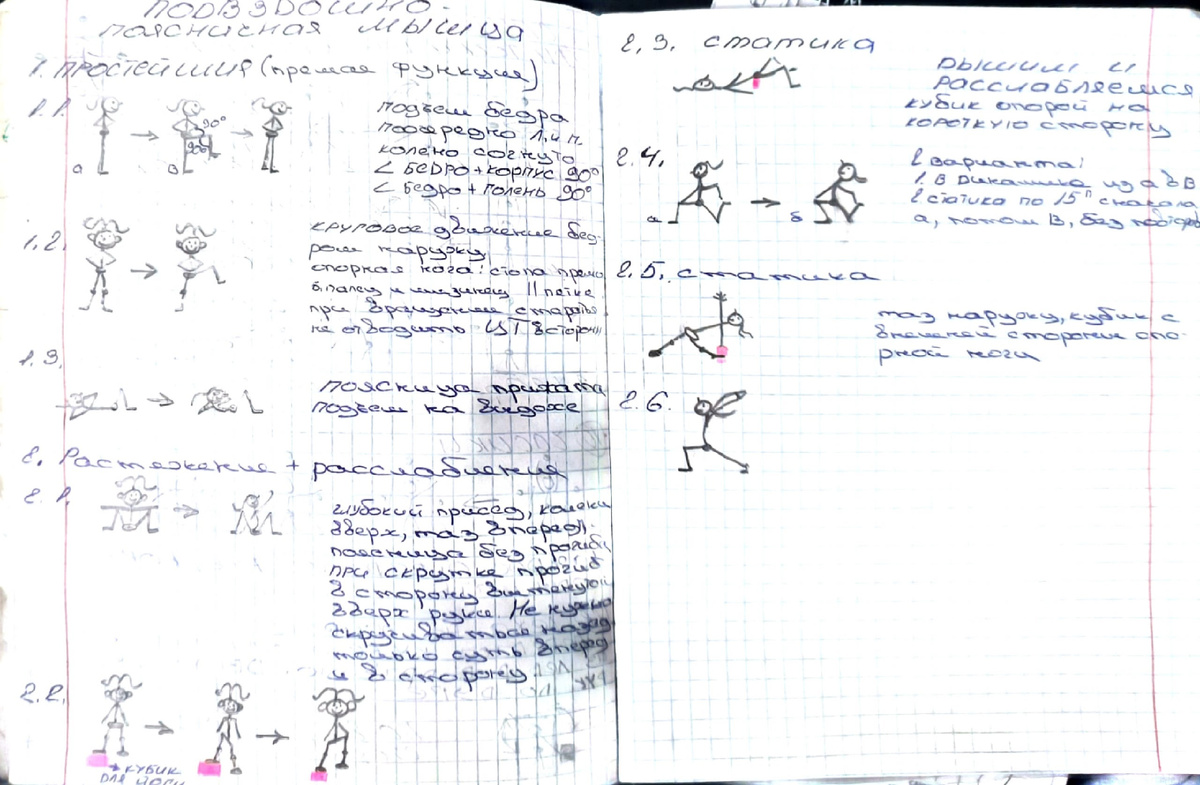 ПОДВЗДОШНО-
ПОЯСНИЧНАЯ МЫШЦА
1. ПРОСТЕЙШИЯ (прямая функция)
1.1.
подъем бедра
поочередно л. и п.
колено согнуто
∠ БЕДРО + корпус 90°
∠ БЕДРО + голень 90°
90°
90°
а
в
1.2.
круговое движение бед-
ром наружу
опорная нога: стопа прямо
б.палец и мизинец || пятке
при вращении
не отводить ЦТ в сторону
1.3.
поясница прижата
подъем на выдохе
2. Растяжение + расслабления
2.1.
глубокий присед, колени
вверх, таз вперед,
поясница без прогиба,
при скрутке прогиб
в сторону вытянутой
вверх руки. Не нужно
скручиваться назад
только чуть вперед
и в сторону
2.2.
→ КУБИК
ДЛЯ ЙОГИ
2.3. статика
ДЫШИМ И
РАССЛАБЛЯЕМСЯ
кубик опорой на
короткую сторону
2.4.
2 варианта:
1. В динамика из а в В
2 статика по 15" сначала
а, потом В, без
а
б
2.5. статика
таз наружу, кубик с
внешней стороны опо-
рной ноги
2.6.